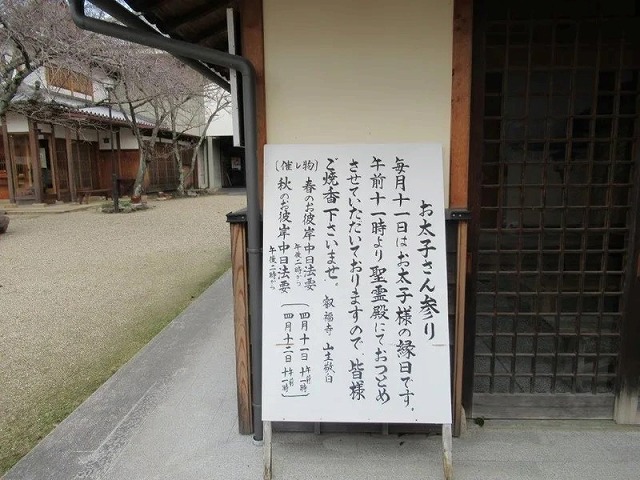 お太子さん参り
毎月十一日はお太子様の縁日です。
午前十一時より聖霊殿にておつとめ
させていただいておりますので、皆様
ご焼香下さいませ。
叡福寺 山主敬白
(催し物)
春のお彼岸中日法要
午後二時から
秋のお彼岸中日法要
午後二時から
四月十一日 午前十一時
四月十二日 午前十一時